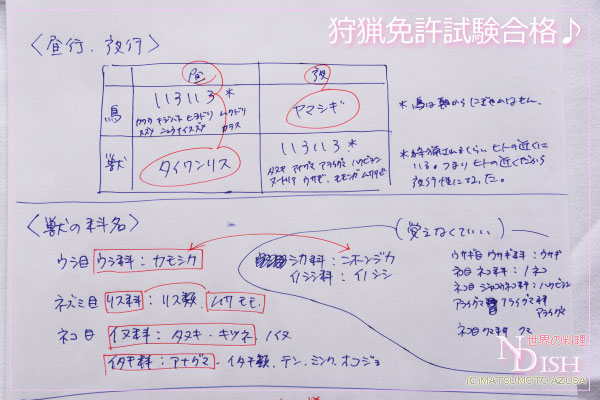 狩猟免許試験合格♪
〈昼行、夜行〉
昼 夜
鳥 いろいろ* ヤマシギ
カワウ キジバト ヒヨドリ ムクドリ
スズメ ニュウナイスズメ カラス
*鳥は朝からにぎやかなもん。
獣 タイワンリス いろいろ*
タヌキ アナグマ アライグマ ハクビシン
ヌートリア ウサギ、モモンガ ムササビ
*狩猟されるくらい ヒトの近くに
いる。つまり ヒトの近くだから
夜行性になった。
〈獣の科名〉
(覚えなくていい)
ウシ目 ウシ科:カモシカ
シカ科:ニホンジカ
イノシシ科:イノシシ
ネズミ目 リス科:リス類、ムササビ モモ、
ネコ目 イヌ科:タヌキ・キツネ、ノイヌ
イタチ科:アナグマ、イタチ類、テン、ミンク、オコジョ
ウサギ目 ウサギ科:ウサギ
ネコ目 ネコ科:ノネコ
ネコ目 ジャコウネコ科:ハクビシン
アライグマ科
アライグマ
ネコ目 クマ科 クマ
世界の料理
NDISH
(C)MATSUMOTO AZUSA